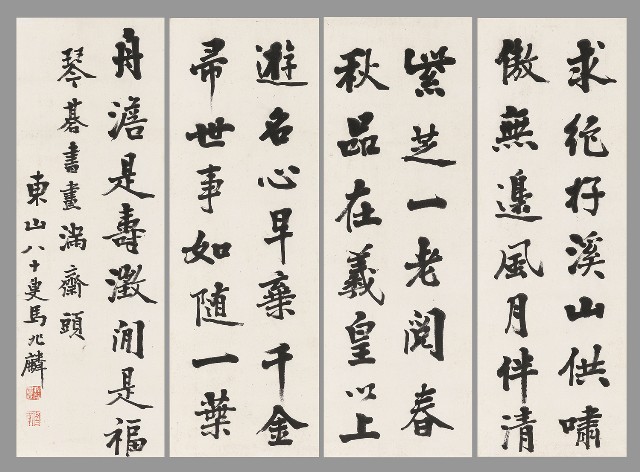 求絕好溪山供嘯
傲無邊風月伴清
紫芝一老閱春
秋品在羲皇以上
遊名心早棄千金
帚世事如随一葉
舟澹是壽澂閒是福
琴碁書畫滿齋頭
東山八十叟馬兆麟